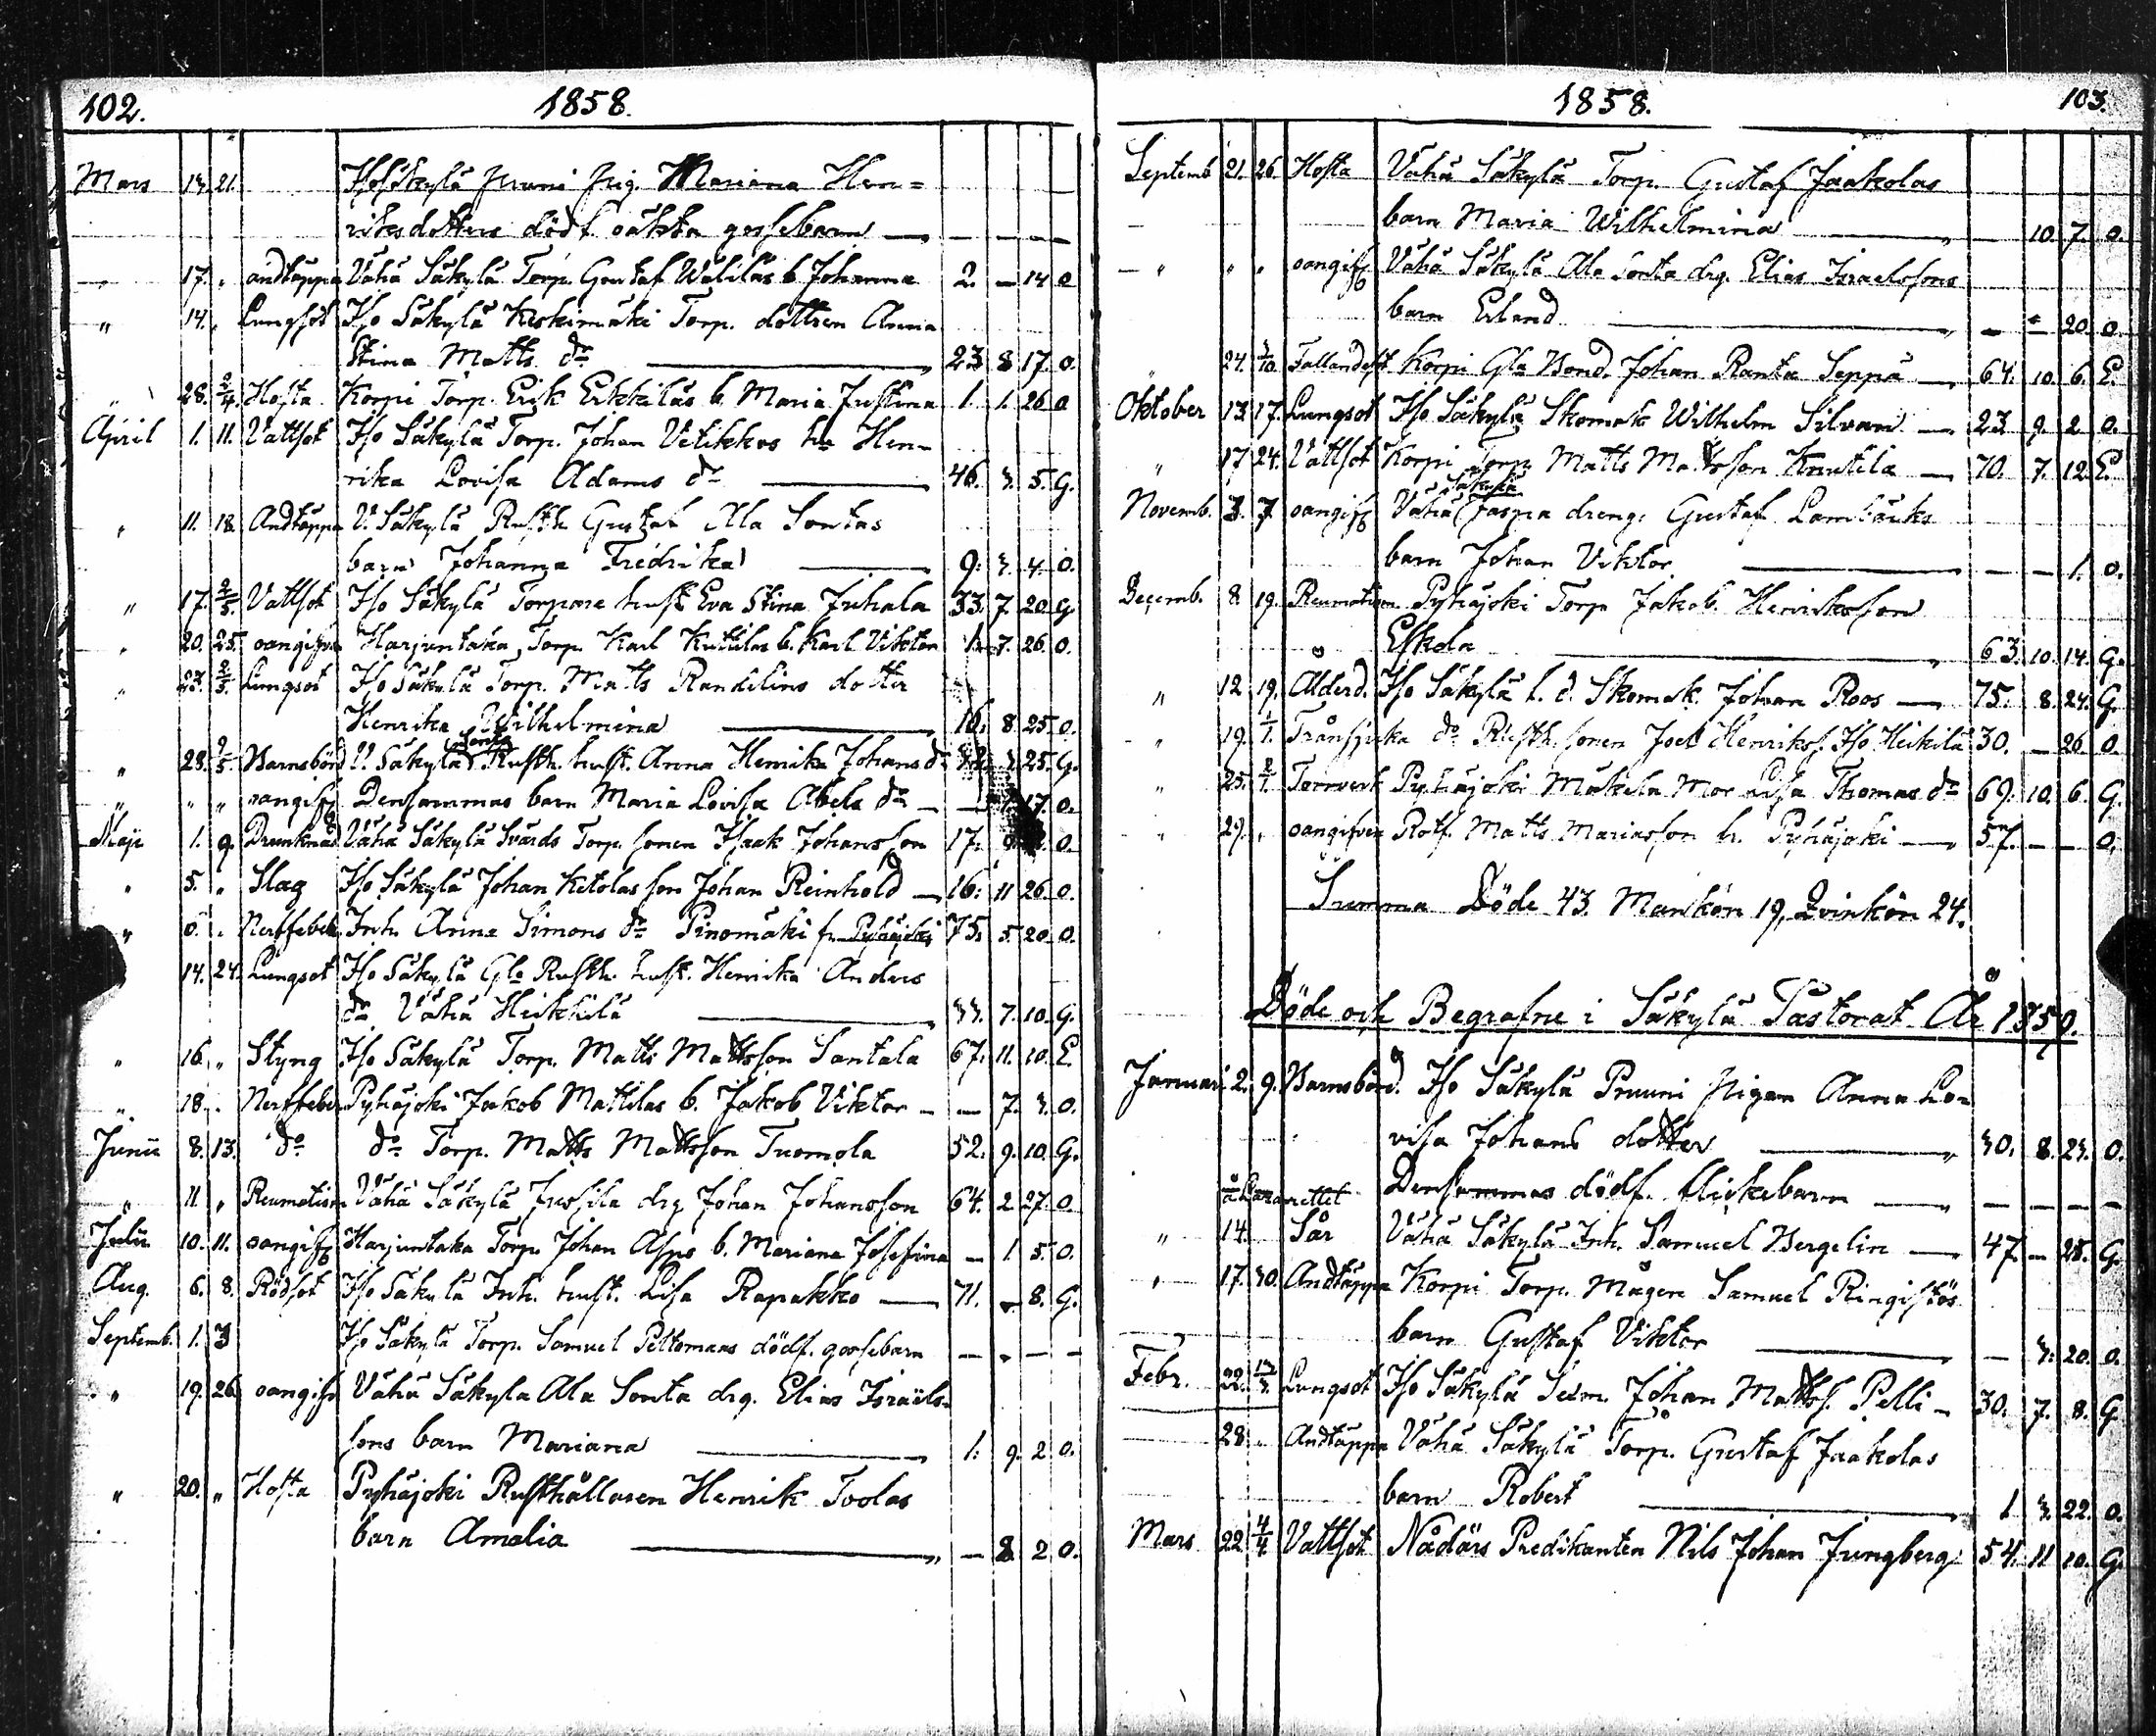 102. 1858.
Mars 13. 21. Iso Säkylä Pruni pig. Mariana Hen=
riksdotters dödf. oäkta gossebarn — — — —
" 17. " andtäppa Vähä Säkylä Torp. Gustaf Wälilas b. Johanna 2. — 14 O
" 14. " Lungsot Iso Säkylä Keskimäki Torp. dottren Anna
Stina Matts dr — 23 8 17. O.
" 28. 2/4. Hosta Korpi Torp. Erik Erkkiläs b. Maria Justina 1. 1. 26 O
April 1. 11. Vattsot Iso Säkylä Torp. Johan Vetikkos hu Hen-
rika Lovisa Adams dr — 46. 3. 5. G.
" 11. 18. Andtäppa V. Säkylä Rusth. Gustaf Ala Sontas
barn Johanna Fredrika — 9. 3. 4. O.
" 17. 2/5. Vattsot Iso Säkylä Torpare hust. Eva Stina Juhala 33. 7 20. G
" 20. 25. oangifven Harjuntaka Torp. Karl Kuttilas b. Karl Viktor 1. 7. 26 O.
" 23. 2/5. Lungsot Iso Säkylä Torp. Matts Randelins dotter
Henrika Wilhelmina — 16. 8 25 O.
" 28. 9/5. Barnsbörd V. Säkylä Sonta Rusth. hust. Anna Henrika Johans dr 25. G.
" " " oangif Densammas barn Maria Lovisa Abels dr — — 17. O.
Maji 1. 9. Drunknad Vähä Säkylä Svärds Torp. sonen Isaak Johansson 17. O.
" 5. " Slag Iso Säkylä Johan Ketolas son Johan Reinhold — 16. 11 26 O.
" 6. " Nerffeber Inh. Anna Simons dr Pinomäki fr. Pyhäjoki 75. 5. 20. O.
14. 24. Lungsot Iso Säkylä Gla Rusth. hust. Henrika Anders
dr Vähä Heikkilä — 33. 7. 10. G.
" 16. " Styng Iso Säkylä Torp. Matts Mattsson Santala 67. 11. 10. E
" 18. " Nerffeber Pyhäjoki Jakob Mattilas b. Jakob Viktor — — 7. 3. O.
Junii 8. 13. do do Torp. Matts Mattsson Tuomola 52. 9. 10. G.
" 11. " Reumatism Vähä Säkylä Jussila drg Johan Johansson 64. 2 27. O.
Julii 10. 11. oangif Harjuntaka Torp. Johan Aspo b. Mariana Josefina — 1 5. O.
Aug. 6. 8. Rödsot Iso Säkylä Inh. hust. Lisa Rapakko — 71. — 8. G.
Septemb. 1. 3 Iso Säkylä Torp. Samuel Peltomaas dödf. gossebarn — — — —
" 19. 26. oangifv Vähä Säkylä Ala Sonta drg. Elias Israels-
sons barn Mariana — 1. 9. 2 O.
" 20. " Hosta Pyhäjoki Rusthållaren Henrik Toolas
barn Amalia — — 8 2 O.
1858. 103.
Septemb 21. 26. Hosta Vähä Säkylä Torp. Gustaf Jaakolas
barn Maria Wilhelmina — — 10. 7. O.
" " " oangif Vähä Säkylä Ala Sonta drg. Elias Israelssons
barn Erland — — — 20. O.
" 24. 3/10. Fallandesot Korpi Gla Bond. Johan Ranta Seppä — 64. 10. 6. E.
Oktober 13. 17. Lungsot Iso Säkylä Skomak. Wilhelm Silvan — 23 9. 2 O.
" 17 24. Vattsot Korpi Torp. Matts Mattsson Knutila — 70. 7. 12. E.
Novemb. 3. 7. oangif Vähä Säkylä Jaspia dreng. Gustaf Lambäcks
barn Johan Viktor — — — 1. O.
Decemb. 8 19. Reumatism Pyhäjoki Torp. Jakob Henriksson
Eskola — 63. 10. 14. G.
" 12. 19. Ålderd. Iso Säkylä l. d. Skomak. Johan Roos — 75. 8. 24. G
" 19. 1/1. Trånsjuka do Rusth. sonen Joel Henrikss. Iso Heikilä 30. — 26. O.
" 25. 2/1. Torrverk Pyhäjoki Mäkelä Mor Lisa Thomas dr 69. 10. 6. G
" 29. " oangifven Rotf. Matts Mariasson fr. Pyhäjoki — 57. — — O.
Summa Döde 43. Mankön 19, Qvinkön 24.
Döde och Begrafne i Säkylä Pastorat År 1859.
Januari 2. 9. Barnsbörd. Iso Säkylä Pruuni Pigan Anna Lo-
visa Johans dotter — 30. 8. 23. O.
Densammas dödf. flickebarn — — — — —
å Lazarettet
" 14. Sår Vähä Säkylä Inh. Samuel Bergelin — 47. — 28. G
" 17. 30. Andtäppa Korpi Torp. Mågen Samuel Ringistös
barn Gustaf Viktor — — 3. 20. O.
Febr. 22. 13/3. Lungsot Iso Säkylä Sexm. Johan Mattss. Pelli — 30. 7. 8. G
28. " Andtäppa Vähä Säkylä Torp. Gustaf Jaakolas
barn Robert — 1 3. 22. O.
Mars 22 4/4 Vattsot Nådårs Predikanten Nils Johan Jungberg 54. 11 10. G.